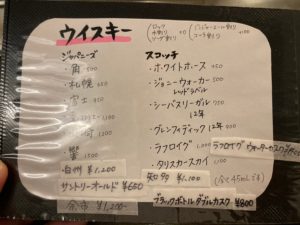 ウイスキー
ロック
水割り +0
ソーダ割り
ジンジャーエール割り
コーラ割り +100
ジャパニーズ
・角 500
・札幌 650
・富士 950
・響 1500
・白州 ¥1,200
サントリーオールド ¥650
・余市 ¥1,200
スコッチ
・ホワイトホース 450
・ジョニーウォーカー 500
レッドラベル
・シーバスリーガル 750
12年
・グレンフィディック 12年 900
・ラフロイグ 1,000
ラフロイグ
・タリスカースカイ 1,100
・知多 ¥1,100
ブラックボトルダブルカスク ¥800